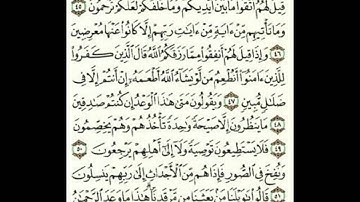 قِيلَ لَهُمُ ٱتَّقُوا۟ مَا بَيْنَ أَيْدِيكُمْ وَمَا خَلْفَكُمْ لَعَلَّكُمْ تُرْحَمُونَ ٤٥
وَمَا تَأْتِيهِم مِّنْ ءَايَةٍ مِّنْ ءَايَٰتِ رَبِّهِمْ إِلَّا كَانُوا۟ عَنْهَا مُعْرِضِينَ
٤٦ وَإِذَا قِيلَ لَهُمْ أَنفِقُوا۟ مِمَّا رَزَقَكُمُ ٱللَّهُ قَالَ ٱلَّذِينَ كَفَرُوا۟
لِلَّذِينَ ءَامَنُوٓا۟ أَنُطْعِمُ مَن لَّوْ يَشَآءُ ٱللَّهُ أَطْعَمَهُۥٓ إِنْ أَنتُمْ إِلَّا فِى
ضَلَٰلٍ مُّبِينٍ ٤٧ وَيَقُولُونَ مَتَىٰ هَٰذَا ٱلْوَعْدُ إِن كُنتُمْ صَٰدِقِينَ
٤٨ مَا يَنظُرُونَ إِلَّا صَيْحَةً وَٰحِدَةً تَأْخُذُهُمْ وَهُمْ يَخِصِّمُونَ
٤٩ فَلَا يَسْتَطِيعُونَ تَوْصِيَةً وَلَآ إِلَىٰٓ أَهْلِهِمْ يَرْجِعُونَ
٥٠ وَنُفِخَ فِى ٱلصُّورِ فَإِذَا هُم مِّنَ ٱلْأَجْدَاثِ إِلَىٰ رَبِّهِمْ يَنسِلُونَ
٥١ قَالُوا۟ يَٰوَيْلَنَا مَنۢ بَعَثَنَا مِن مَّرْقَدِنَا ۜ هَٰذَا مَا وَعَدَ ٱلرَّحْمَٰنُ